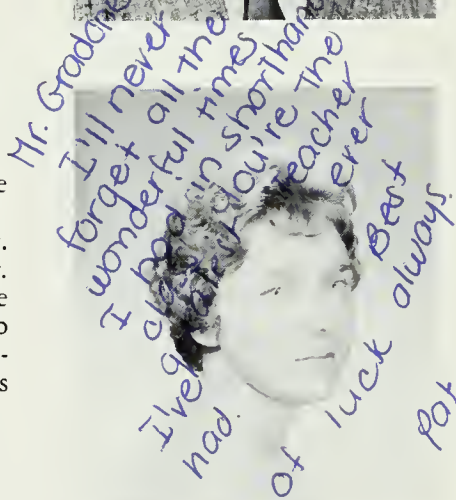 Mr. Gradone
I'll never
forget all the
wonderful times
I had in shorthand
class. You're the
teacher
I've ever
had. Best
of luck always.
Pat